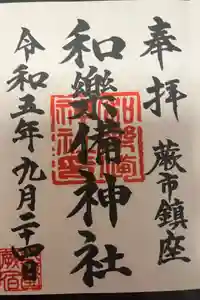 奉拝
蕨市鎮座
和樂備神社
令和五年九月二十四日